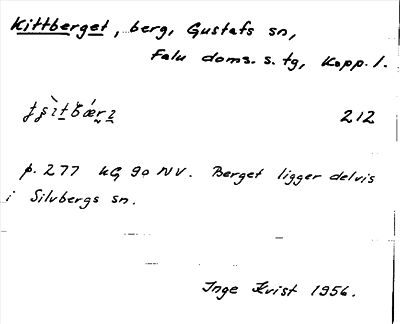 Kittberget, berg, Gustafs sn,
Falu doms. s. tg, Kopp. l.
212
p. 277 kG 90 NV. Berget ligger delvis
i Silvbergs sn.
Inge Kvist 1956.